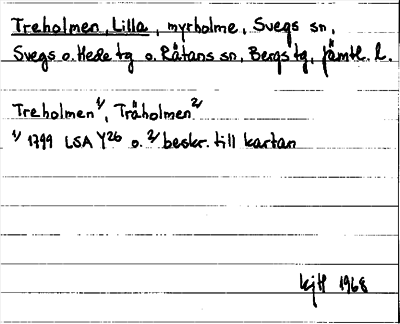 Treholmen, Lilla, myrholme, Svegs sn,
Svegs o. Hede tg o. Råtans sn, Bergs tg, Jämtl. l.
Treholmen 1/, Träholmen 2/
1/ 1799 LSA Y26 o. 2/ beskr. till kartan
kjtl 1968